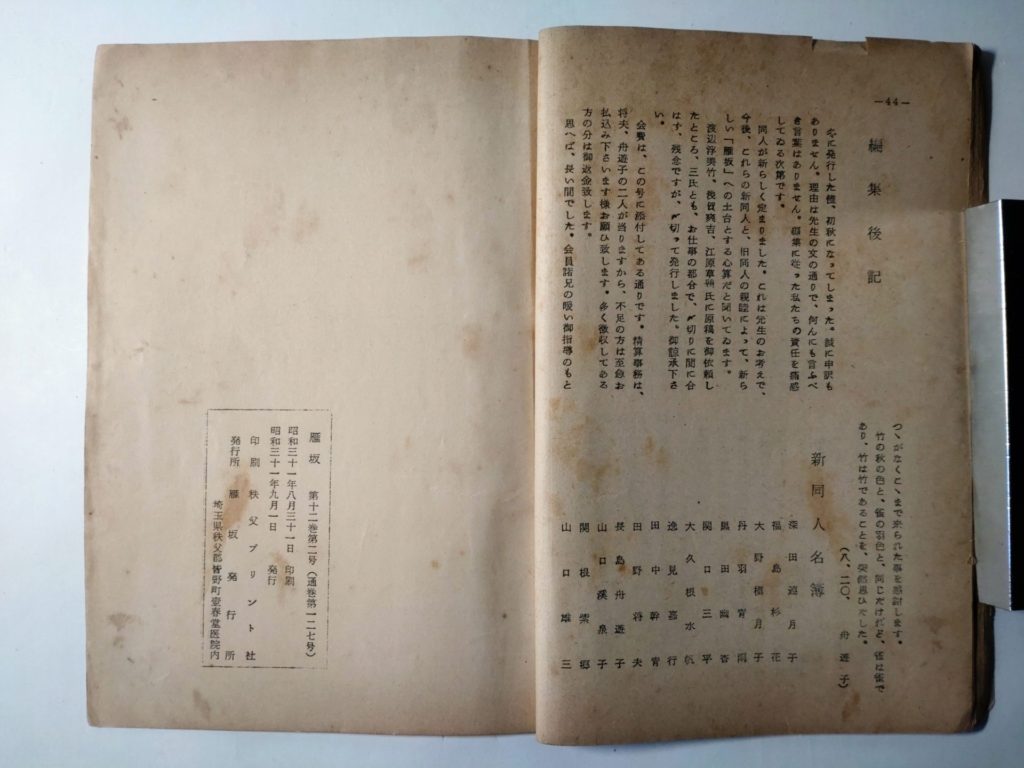 ―44―
編集後記
冬に発行した儘、初秋になってしまった。誠に申訳も
ありません。理由は先生の文の通りで、何んにも言ふべ
き言葉はありません。編集に従った私たちの責任を痛感
してゐる次第です。
同人が新らしく定まりました。これは先生のお考えで、
今後、これらの新同人と、旧同人の親睦によって、新ら
しい「雁坂」への土台とする心算だと聞いてゐます。
渡辺浮美竹、浅賀爽吉、江原草顆氏に原稿を御依頼し
たところ、三氏とも、お仕事の都合で、〆切りに間に合
はず、残念ですが、〆切って発行しました。御諒承下さ
い。
会費は、この号に添付してある通りです。精算事務は、
将夫、舟遊子の二人が当りますから、不足の方は至急お
払込み下さいます様お願ひ致します。多く徴収してある
方の分は御返金致します。
思へば、長い間でした。会員諸兄の暖い御指導のもと
つゝがなくこゝまで来られた事を感謝します。
竹の秋の色と、雀の羽色と、同じだけれど、雀は雀で
あり、竹は竹であることを、突然思ひでした。
(八、二〇、舟遊子)
新同人名簿
深田迺月子
福島杉花
大野楓月子
丹羽青雨
黒田幽杏
関口三平
大久根水帆
逸見嘉行
田中幹青
田野将夫
長島舟遊子
山口溪泉子
関根紫郷
山口雄三
雁坂 第十二巻第二号(通巻第一二七号)
昭和三十一年八月三十一日 印刷
昭和三十一年九月一日 発行
印刷 秩父プリント社
発行所 雁坂発行所
埼玉県秩父郡皆野町壺春堂医院内